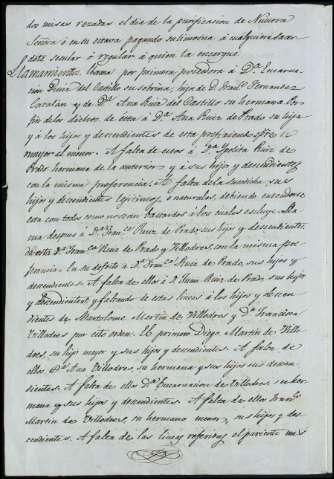 dos misas rezadas el dia de la purificacion de Nuestra
Señora ó en su octava pagando su limosna á cualquiera sacer
dote secular ó regular á quien la encargue
Llamamientos. Llama por primera poseedora á Dª Encarna
cion Ruiz del Castillo su sobrina, hija de D. Fernandez
Catalan y de Dª Ana Ruiz del Castillo su hermana. Des
pues de los dichos de esta á Dª Ana Ruiz de Prado su hija
y á los hijos y descendientes de esta prefiriendo el
mayor al menor. A falta de estos á Dª Ruiz de
Prado hermana de la anterior y á sus hijos y descendientes
con la misma preferencia. A falta de la sus
hijos y descendientes legitimos ó naturales, debiendo entenderse
esto con todos como no sean bastardos á los cuales escluye. Lla
ma despues á D. Franco Ruiz de Prado, sus hijos y descendientes
D. Franco Ruiz de Prado y Villodres con la misma pre
ferencia. En su defecto á D. Franco Ruiz de Prado, sus hijos y
descendientes. A falta de ellos á D. Juan Ruiz de Prado sus hijos
y descendientes y faltando de estas lineas á los hijos y descen
dientes de Bartolome Martin de Villodres y Dª Francisca
Villodres por este orden. El primero Diego Martin de Villo
dres, su hijo mayor y sus hijos y descendientes. A falta de
ellos Dª Ana Villodres, su hermana y sus hijos sus descen
dientes. A falta de ellos Dª Encarnacion de Villodres su her
mana y sus hijos y descendientes. A falta de ellos Franco
Martin de Villodres, su hermano menor, sus hijos y des
cendientes. A falta de las lineas referidas el pariente mas